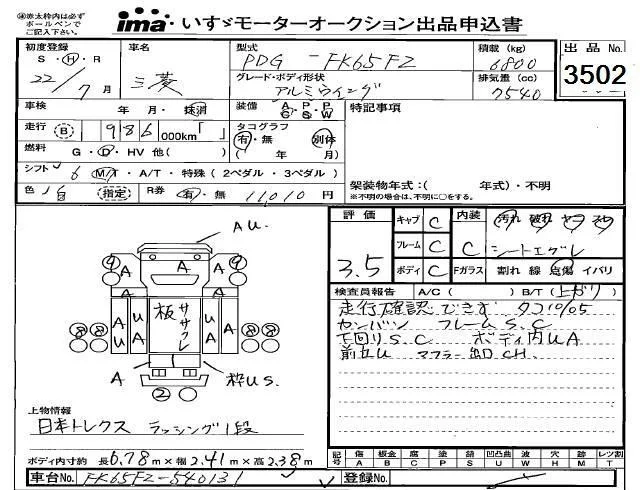 ㊟赤太枠内は必ず
ボールペンで
ご記入下さい。
ima いすゞモーターオークション出品申込書
初度登録 車名 型式 積載 (kg) 出品 No.
S・H・R 22/7月 三菱 PDG-FK65FZ 6800 3502
グレード・ボディ形状 排気量 (cc)
アルミウイング 7540
車検 年・月・抹消 装備 A/C P/S P/W 特記事項
走行 (B) 986 000km「 」 タコグラフ
有・無 別体
燃料 G・D・HV 他( ) ( 年 月)
シフト 6 M/T・A/T・特殊(2ペダル・3ペダル) 架装物年式:( 年式)・不明
色 白 (指定) R券 有・無 11,010円 ※不明の場合は、不明に○をする。
評価 キャブ C 内装 汚れ 破れ
3.5 フレーム C C シートエグレ
ボディ C Fガラス 割れ 線 点傷 イバリ
検査員報告 A/C( ) B/T(上がり)
走行確認できず タコ10/05
カンバン フレームS.C
下回りS.C ボディ内UA
前立U マフラー出口CH.
AU.
A A A
A U U A
板 ササクレ
A 枠US.
②
上物情報
日本トレクス ラッシング1段
ボディ内寸約 長6.78m×幅2.41m×高2.38m
記号 傷A 板金B 腐C 塗P 錆S 凹凸曲U 波W 穴H 跡M レツ割T
車台No. FK65FZ-540131 登録No.